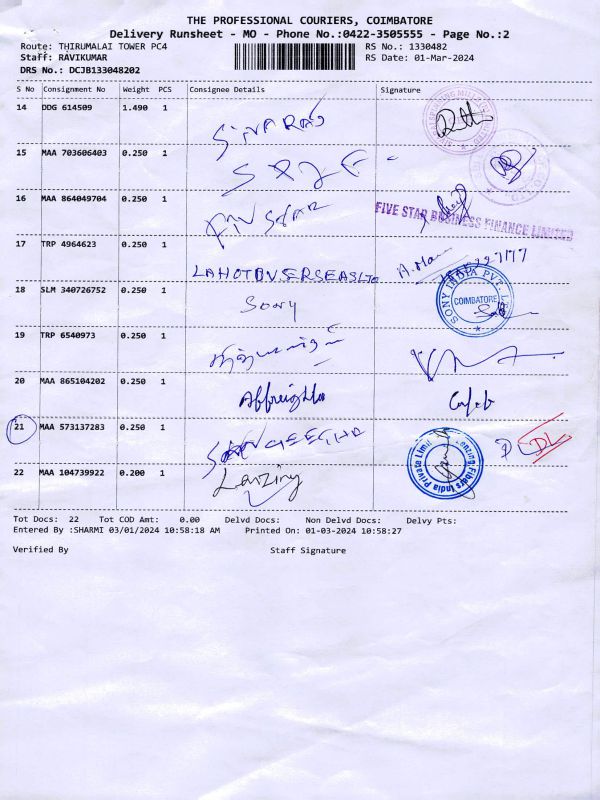 THE PROFESSIONAL COURIERS, COIMBATORE
Delivery Runsheet - MO - Phone No.:0422-3505555 - Page No.:2
Route: THIRUMALAI TOWER PC4 RS No.: 1330482
Staff: RAVIKUMAR RS Date: 01-Mar-2024
DRS No.: DCJB133048202
S No Consignment No Weight PCS Consignee Details Signature
14 DDG 614509 1.490 1
SIVARAJ
15 MAA 703606403 0.250 1
16 MAA 864049704 0.250 1
FIV STAR
FIVE STAR BUSINESS FINANCE LIMITED
17 TRP 4964623 0.250 1
LAHOTOVERSEASLTD
18 SLM 340726752 0.250 1
Sony SONY INDIA PVT. LTD. COIMBATORE
19 TRP 6540973 0.250 1
20 MAA 865104202 0.250 1
Affreights
21 MAA 573137283 0.250 1
DL
22 MAA 104739922 0.200 1
Lenzing Lenzing Fibers India Private Limited
Tot Docs: 22 Tot COD Amt: 0.00 Delvd Docs: Non Delvd Docs: Delvy Pts:
Entered By :SHARMI 03/01/2024 10:58:18 AM Printed On: 01-03-2024 10:58:27
Verified By Staff Signature